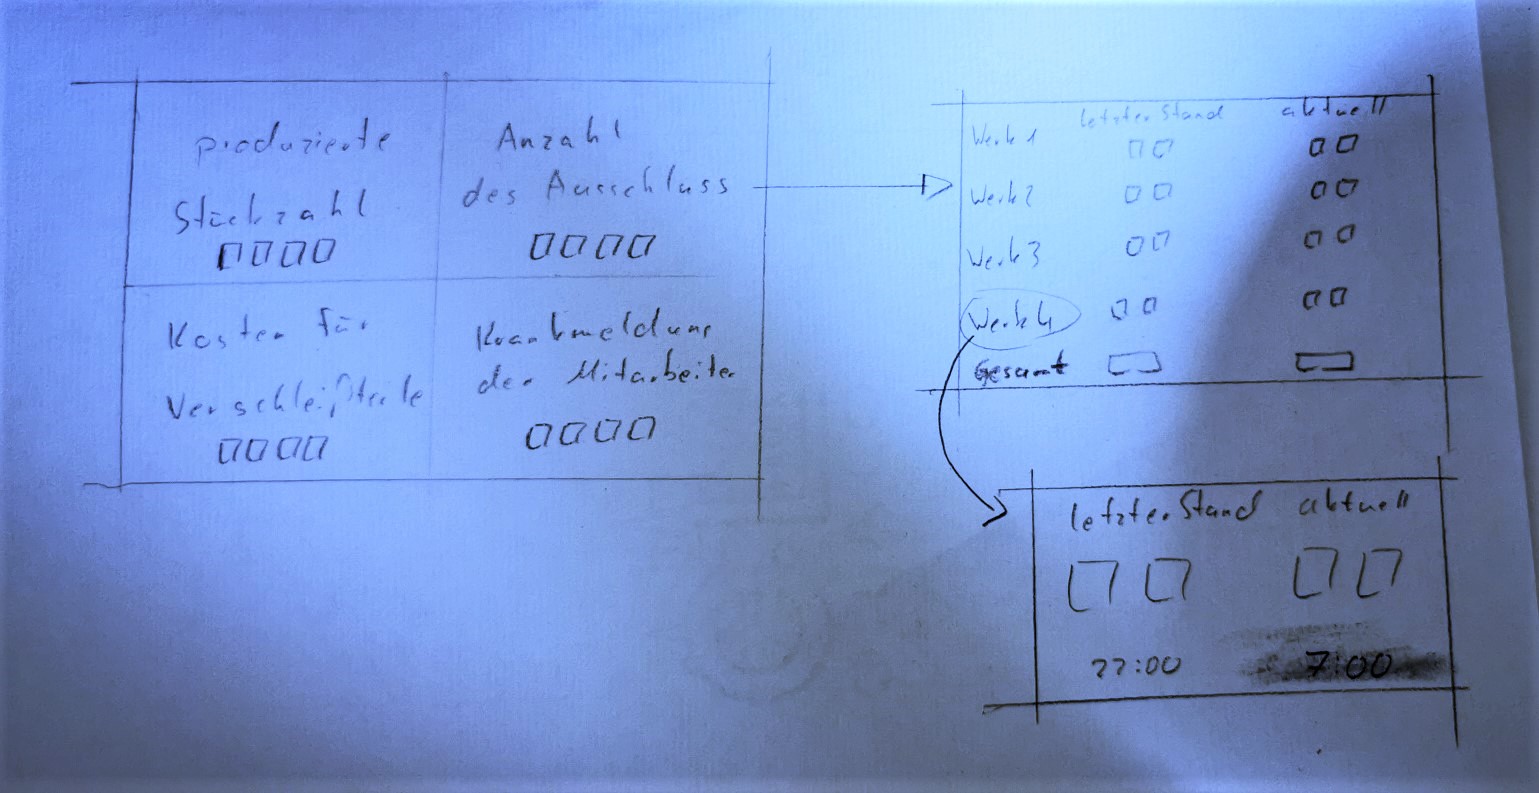 produzierte
Stückzahl
Anzahl
des Ausschluss
Kosten für
Verschleißteile
Krankmeldung
der Mitarbeiter
letzter Stand aktuell
Werk 1
Werk 2
Werk 3
Werk 4
Gesamt
letzter Stand aktuell
22:00 7:00